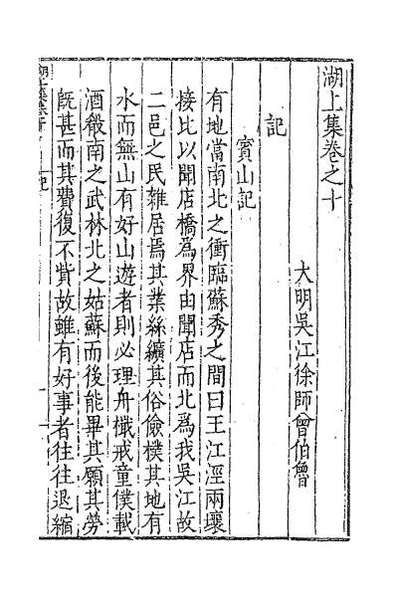 湖上集卷之十
大明吳江徐師曾伯魯
記
寳山記
有地當南北之衝臨蘇秀之間曰王江涇兩壤
接比以聞店橋為界由聞店而北為我吳江故
二邑之民雜居焉其業絲纊其俗儉樸其地有
水而無山有好山遊者則必理舟檥戒童僕載
酒殽南之武林北之姑蘇而後能畢其願其勞
既甚而其費復不貲故雖有好事者往往退縮